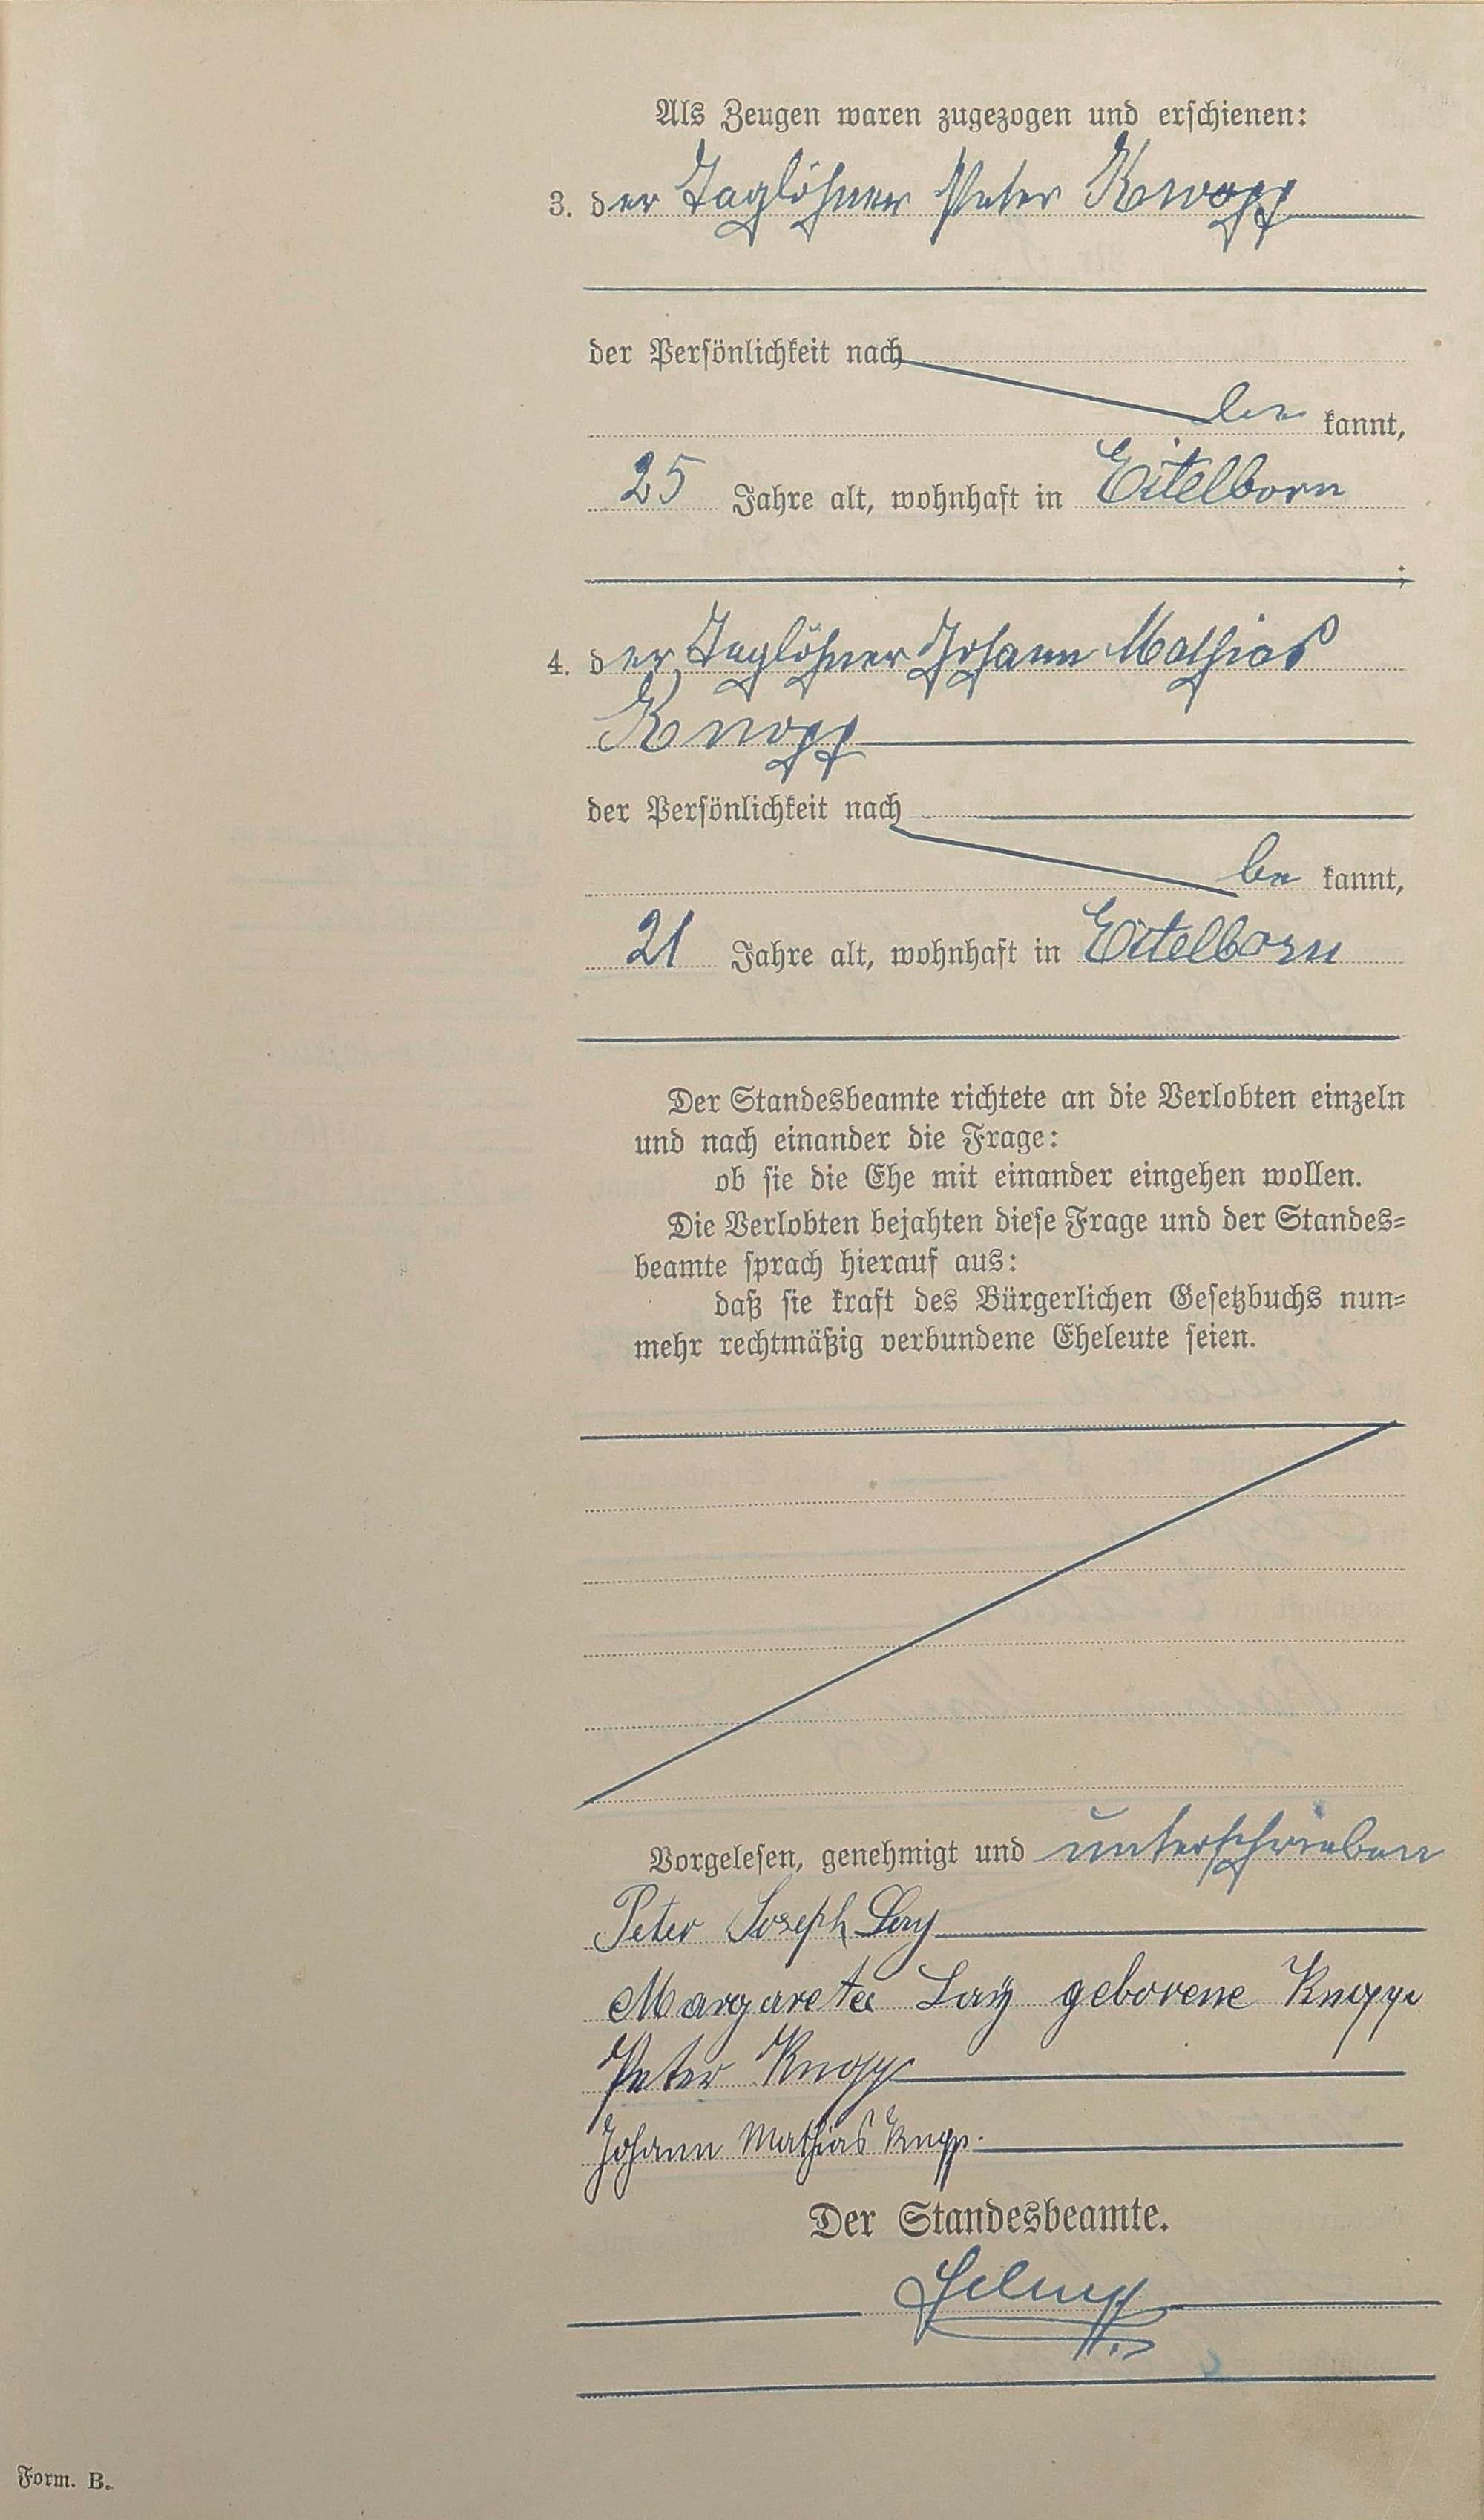 Als Zeugen waren zugezogen und erschienen:
3. der Taglöhner Peter Knopp
der Persönlichkeit nach
be kannt,
25 Jahre alt, wohnhaft in Eitelborn
;
4. der Taglöhner Johann Mathias
Knopp
der Persönlichkeit nach
be kannt,
21 Jahre alt, wohnhaft in Eitelborn
Der Standesbeamte richtete an die Verlobten einzeln
und nach einander die Frage:
ob sie die Ehe mit einander eingehen wollen.
Die Verlobten bejahten diese Frage und der Standes-
beamte sprach hierauf aus:
daß sie kraft des Bürgerlichen Gesetzbuchs nun-
mehr rechtmäßig verbundene Eheleute seien.
Vorgelesen, genehmigt und unterschrieben
Peter Joseph Lay
Margareta Laÿ geborene Knopp
Peter Knopp
Johann Mathias Knopp.
Der Standesbeamte.
Form. B.